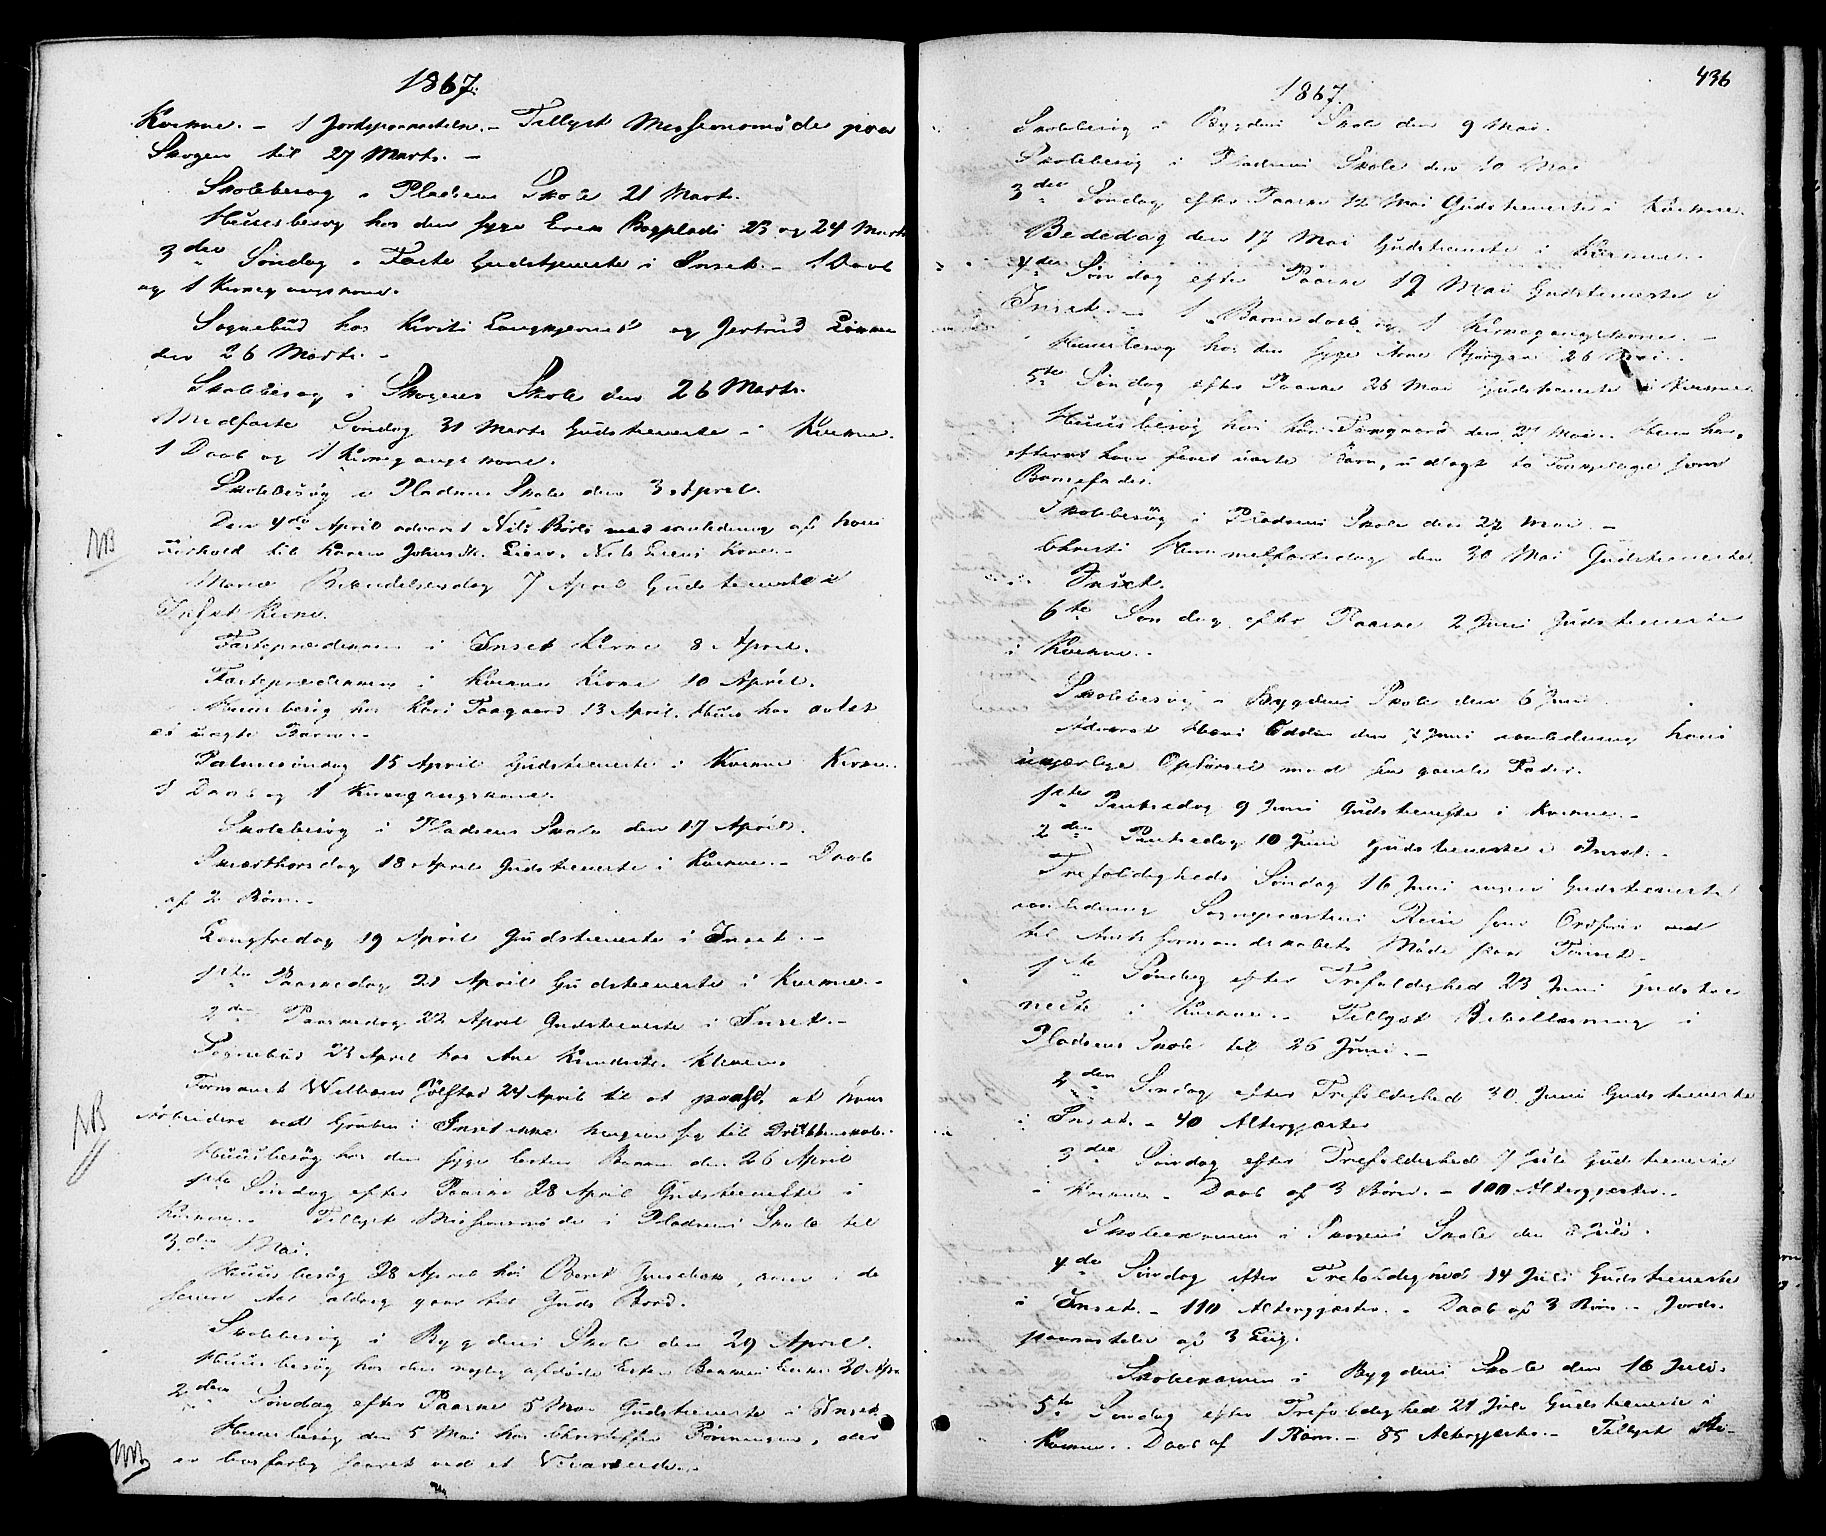 1867.
Kvikne. - 1 Jordspaakastelse. - Tillyst Missionsmøde paa
Skogen til 27 Marts. -
Skolebesøg i Pladsens Skole 21 Marts.
Huusbesøg hos den syge Even Bogplads 23 og 24 Marts
3die Søndag i Faste Gudstjeneste i Inset. - 1 Daab
og 1 Kirkegangskone.
Sognebud hos Kirsti og Jertrud
den 26 Marts. -
Skolebesøg i Skogens Skole den 26 Marts.
Midfaste Søndag 31 Marts Gudstieneste i Kvikne.
1 Daab og 1 Kirkegangskone.
Skolebesøg i Pladsens Skole den 3 April.
NB
Den 4de April advaret Nils i anledning af hans
Forhold til Nils Kone. -
Mariæ Bebudelsesdag 7 April Gudstieneste i
Inset Kirke.
Fasteprædiken i Inset Kirke 8 April.
Fasteprædiken i Kvikne Kirke 10 April.
Huusbesøg hos Kari Taagaard 13 April. Huun har avlet
et uægte Barn. -
Palmesøndag 15 April Gudstieneste i Kvikne Kirke.
1 Daab og 1 Kirkegangskone.
Skolebesøg i Pladsens Skole den 17 April.
Skiærthorsdag 18 April Gudstieneste i Kvikne. - Daab
af 2 Børn. -
Langfredag 19 April Gudstieneste i Inset. -
1ste Paaskedag 21 April Gudstieneste i Kvikne. -
2den Paaskedag 22 April Gudstieneste i Inset. -
Sognebud 23 April hos Ane
NB
Formanet 24 April til at paasee, at hans
Arbeidere ved Gruben i Inset ikke hengive sig til Drikkenskab.
Huusbesøg hos den syge Esten den 26 April
1ste Søndag efter Paaske 28 April Gudstieneste i
Kvikne. - Tillyst Missionsmøde i Pladsens Skole til
3die Mai.
Huusbesøg 28 April hos Beret, som i de
senere Aar aldrig gaar til Guds Bord.
Skolebesøg i Bygdens Skole den 29 April.
Huusbesøg hos den nylig afdøde Esten 30 Apr
2den Søndag efter Paaske 5 Mai Gudstieneste i Inset.
NB
Huusbesøg den 5 Mai hos Christoffer, der
er livsfarlig saaret ved et
436
1867.
Skolebesøg i Bygdens Skole den 9 Mai.
Skolebesøg i Pladsens Skole den 10 Mai
3die Søndag efter Paaske 12 Mai Gudstieneste i Kvikne.
Bededag den 17 Mai Gudstieneste i Kvikne.
4de Søndag efter Paaske 19 Mai Gudstieneste i
Inset. - 1 Barnedaab og 1 Kirkegangskone. -
Huusbesøg hos den syge Arne Bjørgan 26 Mai. -
5te Søndag efter Paaske 26 Mai Gudstieneste i Kvikne
Huusbesøg hos Kari Taagaard den 27 Mai. Huun har,
efterat have født uægte Barn, udlagt to som
Barnefader.
Skolebesøg i Pladsens Skole den 27 Mai. -
Christi Himmelfartsdag den 30 Mai Gudstieneste
i Inset.
6te Søndag efter Paaske 2 Juni Gudstieneste
i Kvikne. -
Skolebesøg i Bygdens Skole den 6 Juni
Advaret Hans Odden den 7 Juni i anledning hans
Opførsel mod sin gamle Fader.
1ste Pintsedag 9 Juni Gudstieneste i Kvikne. -
2den Pintsedag 10 Juni Gudstieneste i Inset. -
Trefoldigheds Søndag 16 Juni ingen Gudstieneste i
anledning Sognepræstens Reise som Ordfører
til Amtsformandskabets Møde paa
1ste Søndag efter Trefoldighed 23 Juni Gudstie
neste i Kvikne. - Tillyst Bibellæsning i
Pladsens Skole til 26 Juni. -
2den Søndag efter Trefoldighed 30 Juni Gudstieneste
i Inset. - 40 Altergjæster
3die Søndag efter Trefoldighed 7 Juli Gudstieneste
i Kvikne - Daab af 3 Børn. - 100 Altergjæster. -
Skoleexamen i Skogens Skole den 8 Juli.
4de Søndag efter Trefoldighed 14 Juli Gudstieneste
i Inset. - 110 Altergjæster. - Daab af 3 Børn. - Jords-
paakastelse af 3 Liig.
Skoleexamen i Bygdens Skole den 16 Juli.
5te Søndag efter Trefoldighed 21 Juli Gudstieneste i
Kvikne. - Daab af 1 Barn. - 85 Altergjæster. - Tillyst